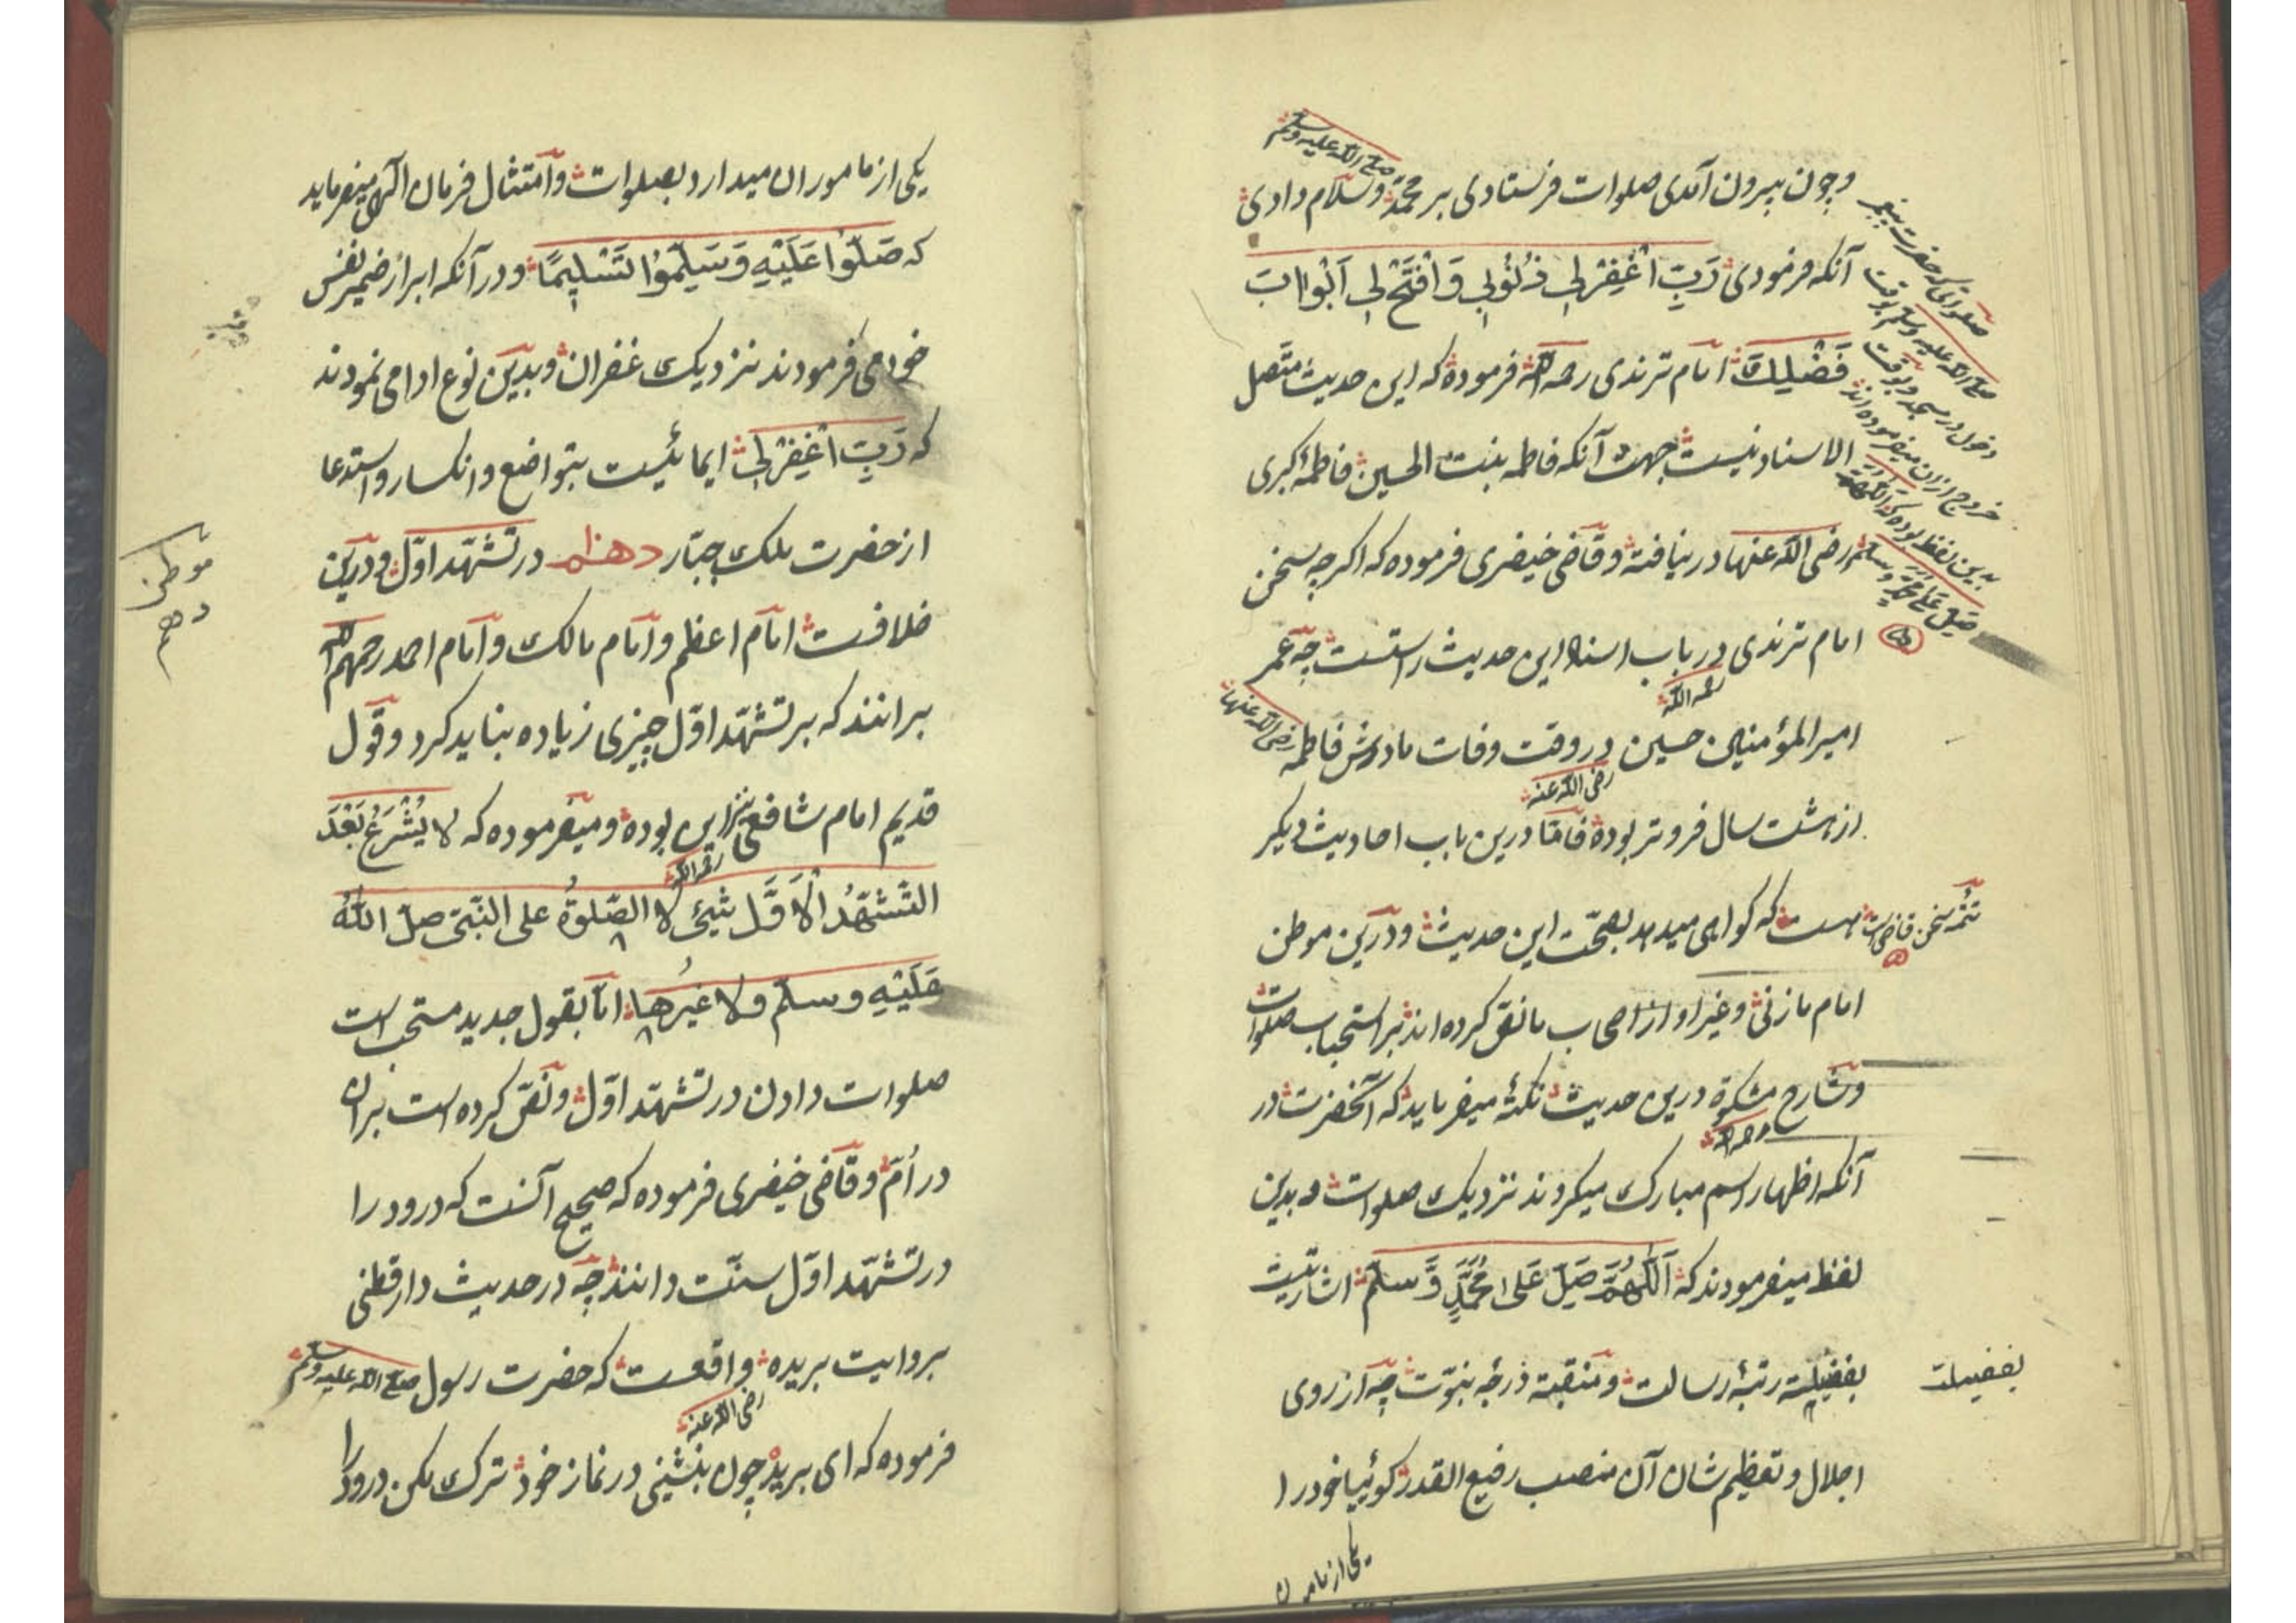 وچون بیرون آمدی صلوات فرستادی بر محمد صلی الله علیه وسلم وسلام دادی
آنکه فرمودی رَبِّ اغْفِرْلِی ذُنُوبِی وَافْتَحْ لِی اَبْوَابَ
فَضْلِكَ امام ترمذی رحمه الله فرموده که این حدیث متصل
الاسناد نیست جهت آنکه فاطمه بنت الحسین فاطمهٔ کبری
رضی الله عنها در نیافته وقاضی خیضری فرموده که اکرچه سخن
امام ترمذی در باب اسناد این حدیث راستست چه عمر
امیر المؤمنین حسین رضی الله عنه در وقت وفات مادرش فاطمه رضی الله عنها
از هشت سال فروتر بوده فامّا درین باب احادیث دیکر
هست که کواهی میدهد بصحّت این حدیث ودرین موطن
امام مازنی وغیر او از اصحاب ما نقل کرده اند بر استحباب صلوات
وشارح مشکوة رحمه الله درین حدیث نکتهٔ میفرماید که آنحضرت در
آنکه اظهار اسم مبارک میکردند نزدیک صلوات وبدین
لفظ میفرمودند که اَللّٰهُمَّ صَلِّ عَلی مُحَمَّدٍ وَّسلّم اشارتیست
بفضیلة رتبهٔ رسالت ومنقبة درجهٔ نبوّت چه از روی
اجلال وتعظیم شان آن منصب رفیع القدر کوئیا خود را
یکی از مامورن
صلواتی که حضرت پیغمبر
صلی الله علیه وسلم بوقت
دخول در مسجد وبوقت
خروج ازان میفرموده اند
بدین لفظ بوده که اللهم
صَلِّ عَلی محمد وسلم
تتمه سخن قاضی است
بفضیلت
یکی از ماموران میدارد بصلوات وامتثال فرمان الهی میفرماید
که صَلُّوا عَلَیْهِ وَسَلِّمُوْا تَسْلِیْمًا ودر آنکه ابراز ضمیر نفس
خود می فرمودند نزدیک غفران وبدین نوع ادا می نمودند
که رَبِّ اغْفِرْلِی ایمائیست بتواضع وانکسار واستدعا
از حضرت ملک جبّار دهم در تشهّد اوّل ودرین
خلافست امام اعظم وامام مالک وامام احمد رحمهم الله
برانند که بر تشهّد اوّل چیزی زیاده نباید کرد وقول
قدیم امام شافعی رحمه الله نیز این بوده ومیفرموده که لا یُشْرَعُ بَعْدَ
التَّشَهُّدُ الْاَوَّل شیئ لا الصّلوةُ علی النّبی صلّ اللّٰهُ
عَلَیْهِ وسلّم ولا غیرُها امّا بقول جدید مستحب است
صلوات دادن در تشهّد اوّل ونقل کرده است بران
در اُمّ وقاضی خیضری فرموده که صحیح آنست که درود را
در تشهّد اوّل سنّت دانند چه در حدیث دارقطنی
بروایت بریده رضی الله عنه واقعست که حضرت رسول صلی الله علیه وسلم
فرموده که ای بریده چون بنشینی در نماز خود ترک مکن درود را
موطن
دهم